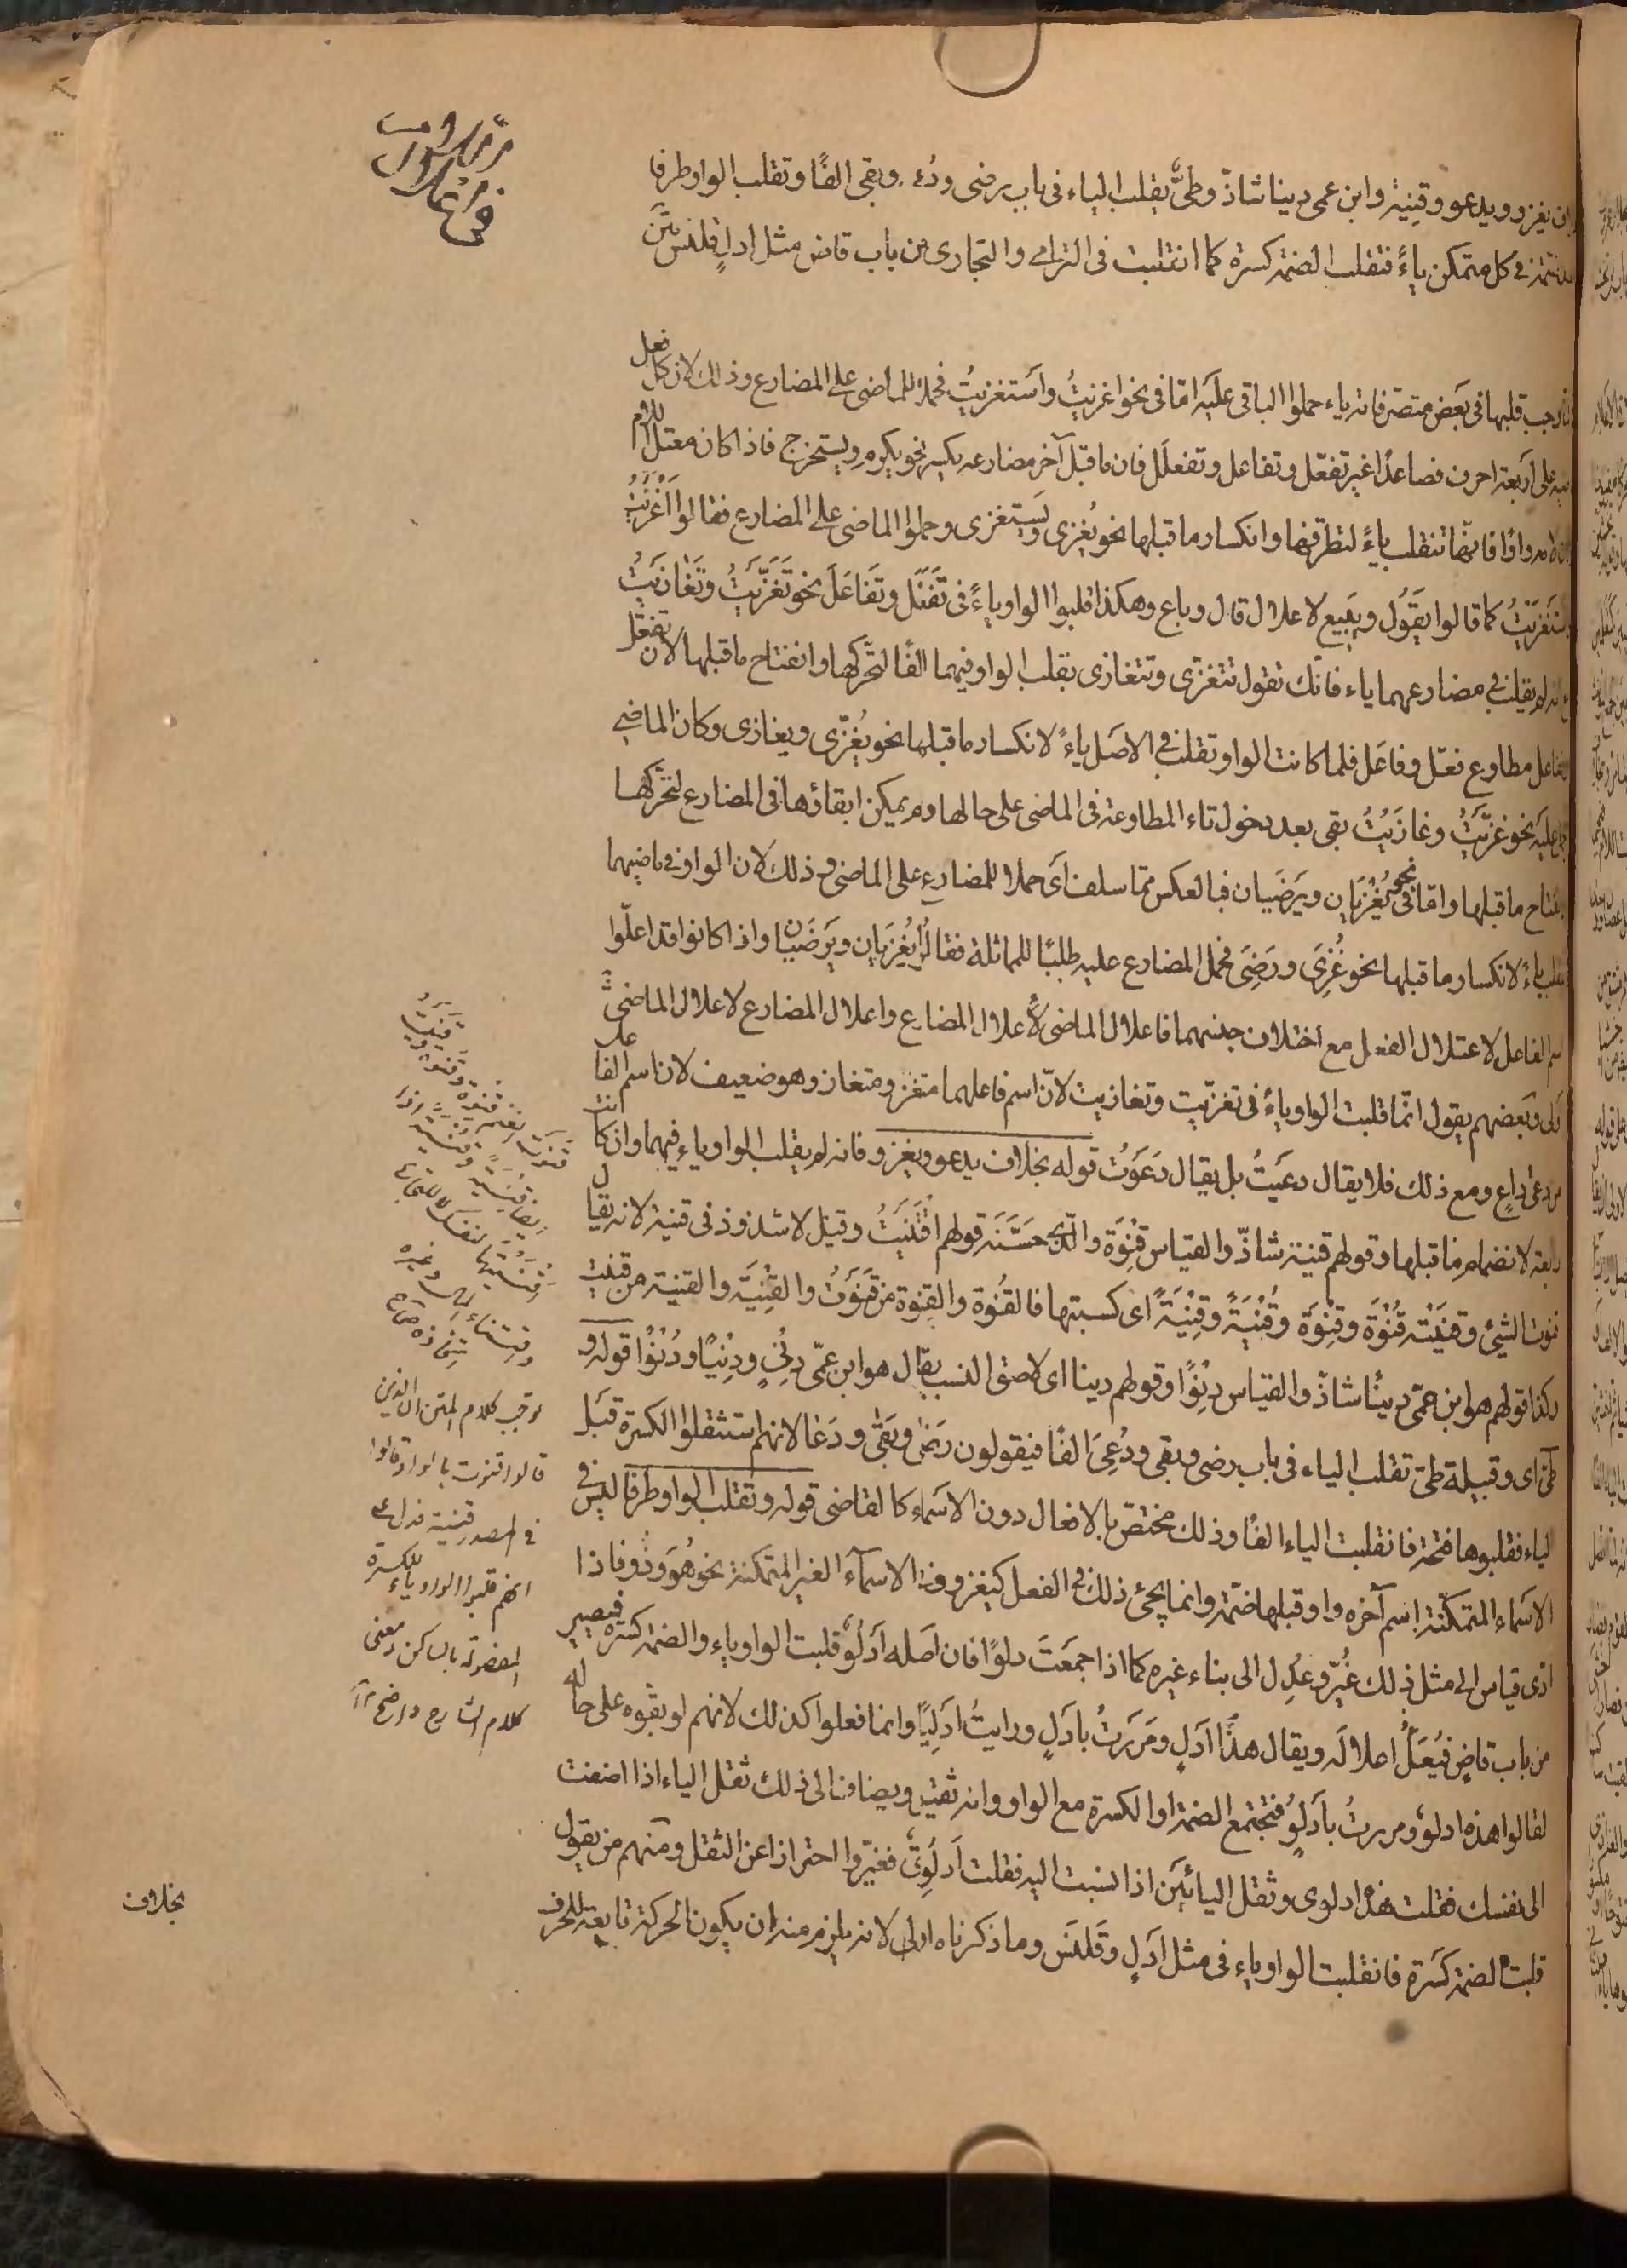 يغزو ويدعو وقِنية وابن عمى دينا شاذّ وطىّ يقلب الياء فى باب رضى ودُعى وبقى الفًا وتقلب الواو طرفا
بعد ضمة فى كل متمكن ياءً فتقلب الضمة كسرة كما انقلبت فى الترامى والتجارى من باب قاض مثل ادلٍ وقلنس
وجب قلبها فى بعض متصرفاته ياء حملوا الباقى عليه امّا فى نحو اغزيتُ واستغزيتُ فحملا للماضى على المضارع وذلك لان كلّ فعل
على اربعة احرف فصاعدًا غير تفعّل وتفاعل وتفعلَل فان ما قبل آخر مضارعه يكسر نحو يكرم ويستخرج فاذا كان معتلّ اللام
لامه واوًا فانّها تنقلب ياءً لتطرّفها وانكسار ما قبلها نحو يُغزى ويستغزى وحملوا الماضى على المضارع فقالوا اَغْزَيتُ
كما قالوا يَقول ويَبيع لاعلال قال وباع وهكذا قلبوا الواو ياءً فى تَفعّل وتَفاعَل نحو تَغَزّيتُ وتَغازيتُ
يقلب فى مضارعهما ياء فانّك تقول تتغزّى وتتغازى بقلب الواو فيهما الفًا لتحرّكها وانفتاح ما قبلها لان تفعّل
وتفاعل مطاوع فعّل وفاعَل فلما كانت الواو تقلب فى الاصل ياءً لانكسار ما قبلها نحو يُغزّى ويغازى وكان الماضى
عليه نحو غزّيتُ وغازَيتُ بقى بعد دخول تاء المطاوعة فى الماضى على حالها ولم يمكن ابقاؤها فى المضارع لتحركها
ما قبلها وامّا فى نحو يُغْزَيان ويَرضَيان فبالعكس ممّا سلف اى حملا للمضارع على الماضى وذلك لان الواو فى ماضيهما
ياءً لانكسار ما قبلها نحو غُزِىَ ورَضِىَ فحمل المضارع عليه طلبًا للمماثلة فقالوا يُغْزَيان ويَرضَيان واذا كانوا قد اعلّوا
اسم الفاعل لاعتلال الفعل مع اختلاف جنسهما فاعلال الماضى لاعلال المضارع واعلال المضارع لاعلال الماضى
وبعضهم يقول انّما قلبت الواو ياءً فى تغزّيت وتغازيت لانّ اسم فاعلهما متغز ومتغاز وهو ضعيف لان اسم الفاعل
داعٍ ومع ذلك فلا يقال دعَيتُ بل يقال دَعَوتُ قوله بخلاف يدعو ويغزو فانه لم يقلب الواو ياء فيهما وان كانت
رابعة لانضمام ما قبلها وقولهم قنية شاذّ والقياس قِنوَة والذى حسّنه قولهم اقْتَنَيتُ وقيل لا شذوذ فى قنية لانه يقال
قنوت الشئ وقنيته قُنْوَة وقِنوَة وقُنْيَةً وقِنْيَةً اى كسبتها فالقُنوة والقِنوة من قَنَوتُ والقُنْيَة والقنية من قنيت
وكذا قولهم هو ابن عمّى دِينًا شاذّ والقياس دِنْوًا وقولهم دينا اى لاصق النسب يقال هو ابن عمّى دِنْىٍ ودِنْيًا ودُنْوًا قوله و
طىّ اى وقبيلة طىّ تقلب الياء فى باب رضى وبقى ودُعِىَ الفًا فيقولون رَضى وبَقى ودَعا لانهم استثقلوا الكسرة قبل
الياء فقلبوها فتحة فانقلبت الياء الفًا وذلك مختصّ بالافعال دون الاسماء كالقاضى قوله وتقلب الواو طرفا ليس فى
الاسماء المتمكنة اسم آخره واو وقبلها ضمّة وانما يجئ ذلك فى الفعل كيغزو وفى الاسماء الغير المتمكنة نحو هُوَ وذُو فاذا
ادى قياس الى مثل ذلك غُيّر وعُدِل الى بناء غيره كما اذا جمعتَ دلوًا فان اصله اَدْلُوٌ قلبت الواو ياء والضمة كسرة فيصير
من باب قاضٍ فيُعَلّ اعلاله ويقال هذا اَدلٍ ومَررتُ باَدلٍ ورايتُ ادلِيًا وانما فعلوا كذلك لانهم لو بقّوه على حاله
لقالوا هذه ادلوٌ ومررتُ بادلوٍ فتجتمع الضمة او الكسرة مع الواو وانه ثقيل ويضاف الى ذلك ثقل الياء اذا اضفت
الى نفسك فقلت هذه ادلوى وثقل اليائين اذا نسبت اليه فقلت اَدلُوِىّ فغيّروا احترازا عن الثقل ومنهم من يقول
قلبت الضمة كسرة فانقلبت الواو ياء فى مثل ادلٍ وقلنس وما ذكرناه اولى لانه يلزم منه ان يكون الحركة تابعة للحرف
توجيه كلام المتن ان الذين
قالوا قنوت بالواو قالوا
فى المصدر قنية فدل على
انهم قلبوا الواو ياء للكسرة
المفصولة بالساكن ومعنى
كلام الشارح واضح
بخلاف